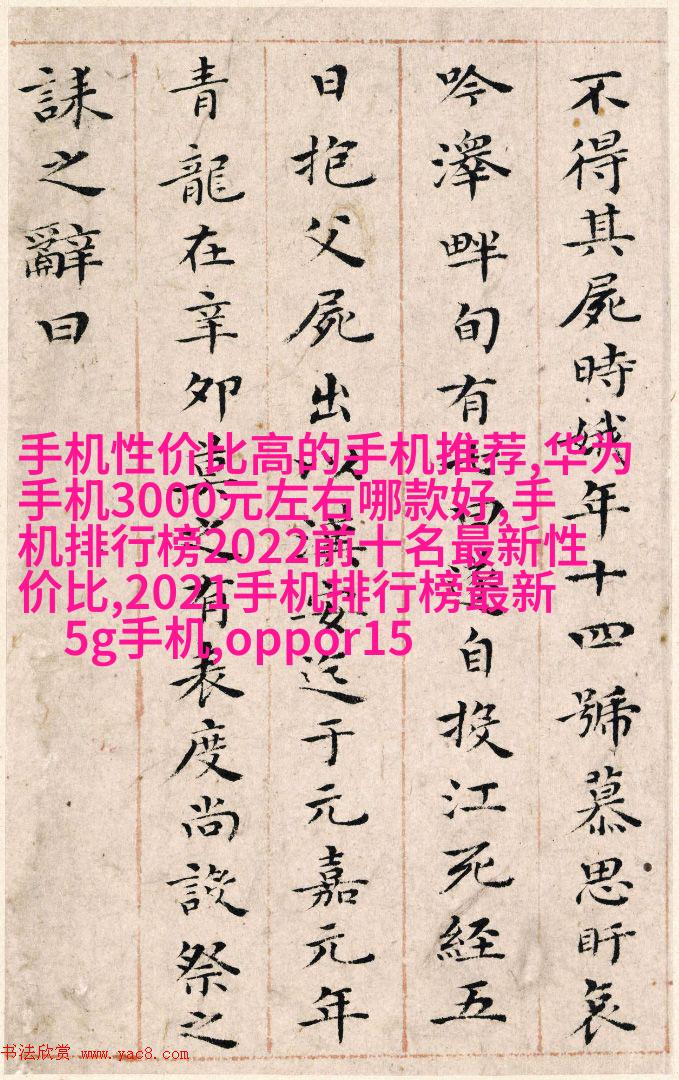 不得其屍時娥年十四號慕思盱哀
吟澤畔旬有七日遂自投江死經五
日抱父屍出以漢安迄于元嘉元年
青龍在辛卯莫之有表度尚設祭之
誄之辭曰
手机性价比高的手机推荐,华为
手机3000元左右哪款好,手
机排行榜2022前十名最新性
价比,2021手机排行榜最新
5g手机,oppor15
书法欣赏 www.yac8.com